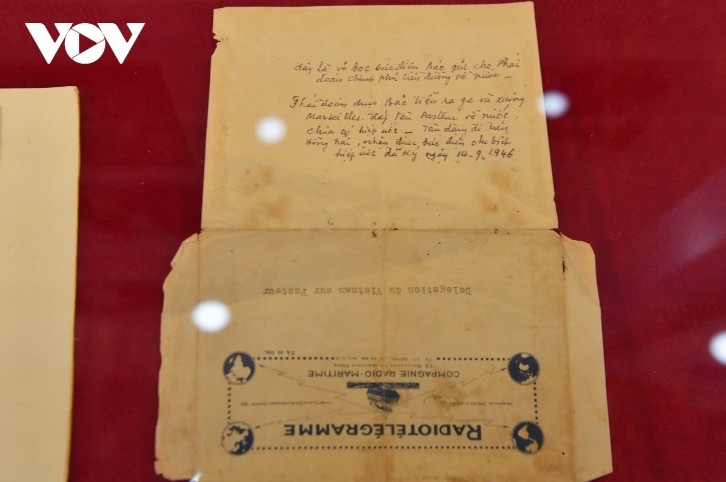 VOV
Đây là vỏ bọc bức điện Bác gửi cho Phái
đoàn chính phủ trên đường về nước –
Phái đoàn được Bác tiễn ra ga và xuống
Marseilles. Đáp tàu Pasteur về nước.
Chưa có hiệp ước – Tàu đang đi trên
Hồng Hải, nhận được bức điện cho biết
hiệp ước đã ký ngày 14-9-1946
RADIOTÉLÉGRAMME
COMPAGNIE RADIO-MARITIME
Delegation du Vietnam sur Pasteur